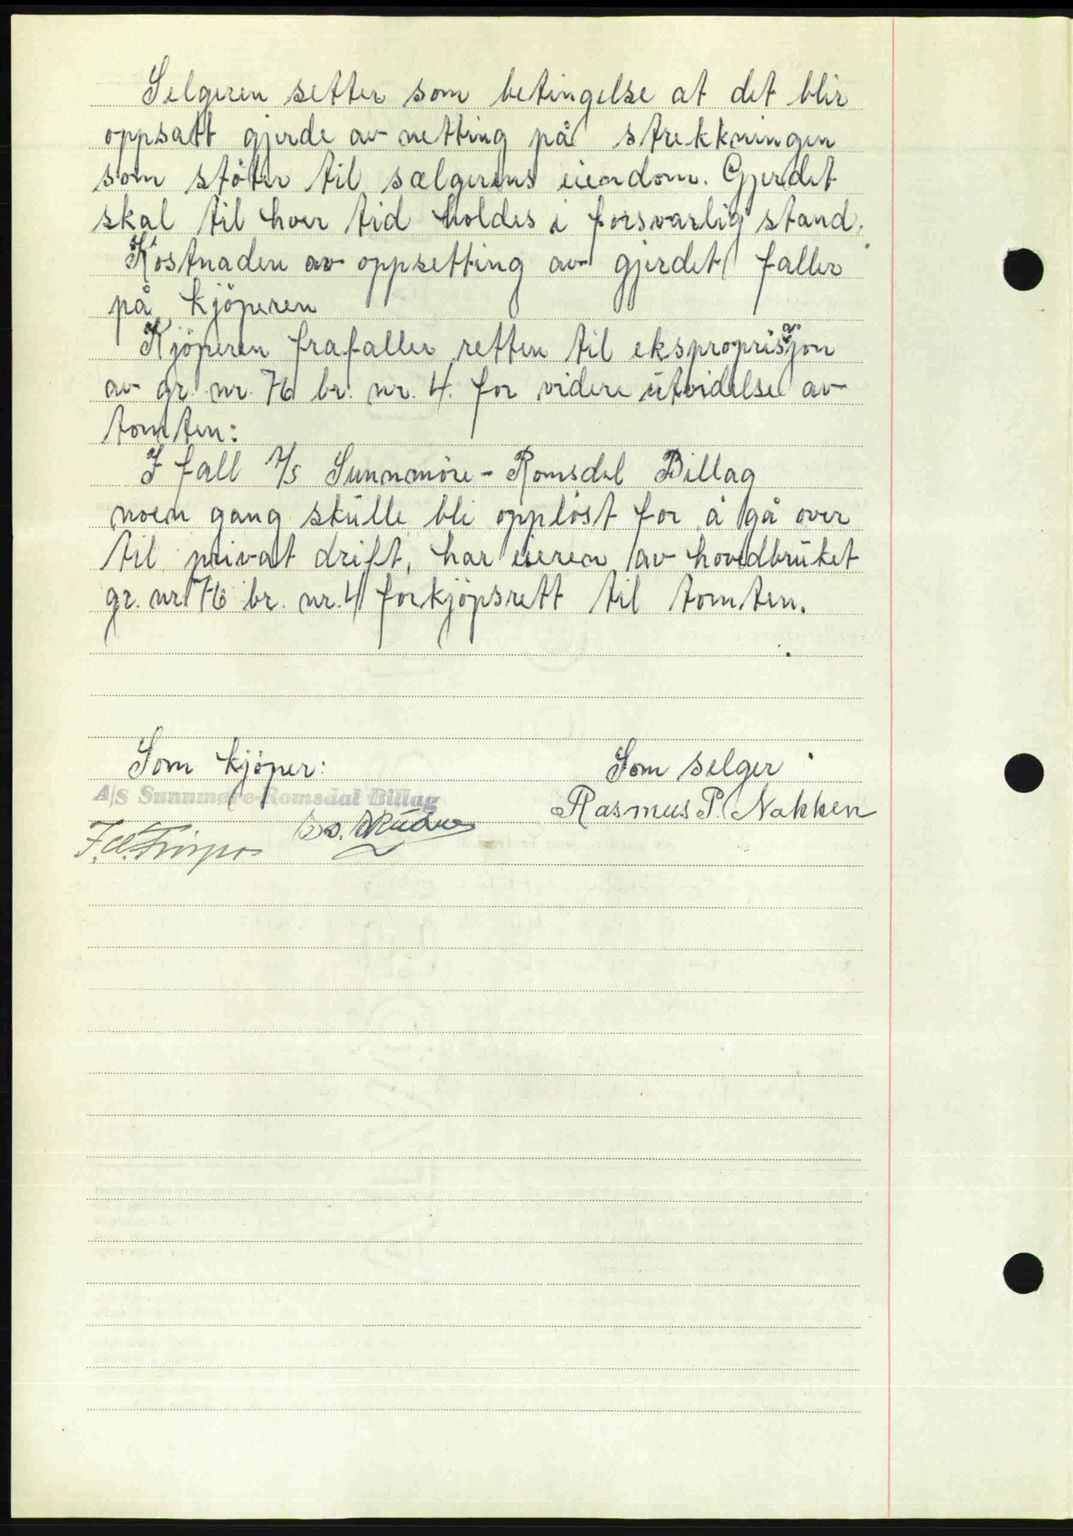 Selgeren setter som betingelse at det blir
oppsatt gjerde av netting på strekkningen
som støter til sælgerens eiendom. Gjerdet
skal til hver tid holdes i forsvarlig stand.
Kostnaden av oppsetting av gjerdet faller
på kjöperen
Kjöperen frafaller retten til ekspropriasjon
av gr. nr. 76 br. nr. 4. for videre utvidelse av
tomten:
I fall A/S Sunnmöre - Romsdal Billag
noen gang skulle bli opplöst for å gå over
til privat drift, har eieren av hovedbruket
gr. nr. 76 br. nr. 4 forkjöpsrett til tomten.
Som kjöper: Som selger
A/S Sunnmøre-Romsdal Billag Rasmus P. Nakken